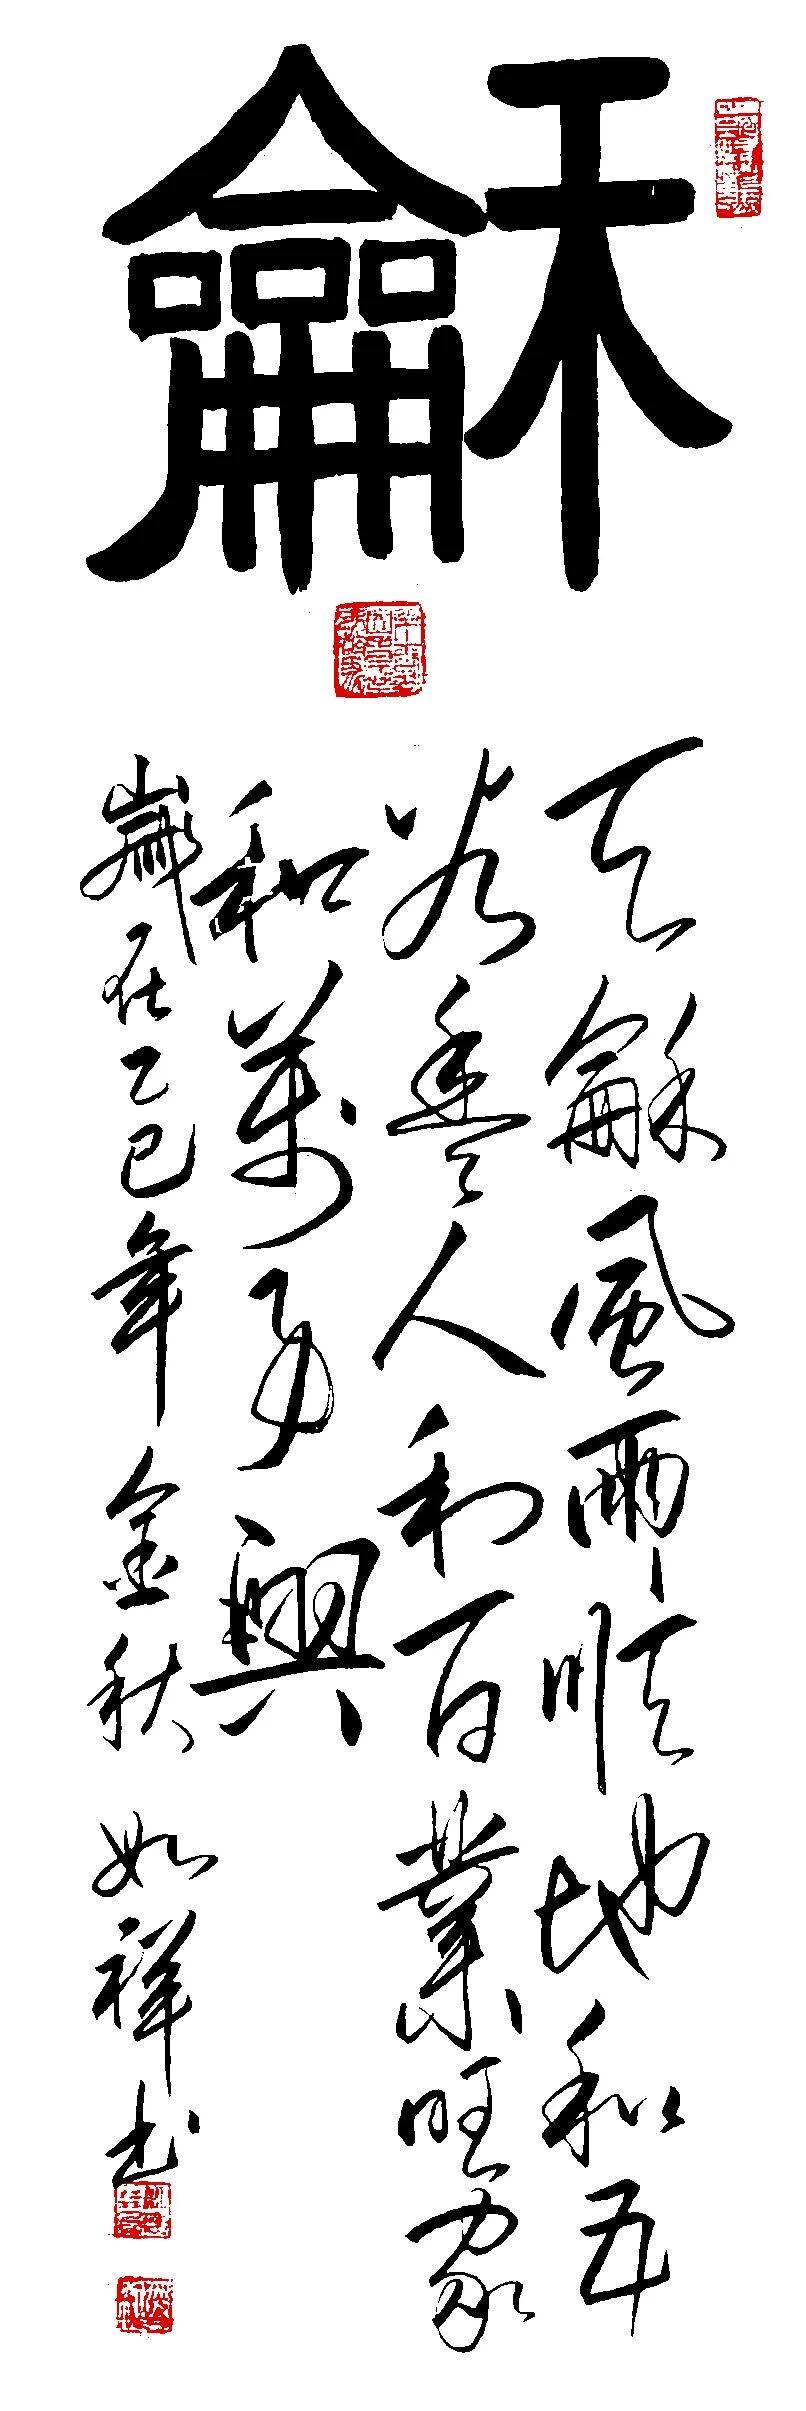 龢
天龢風雨順地和五
谷豐人和百業旺家
和萬事興
歲在乙巳年金秋如祥书